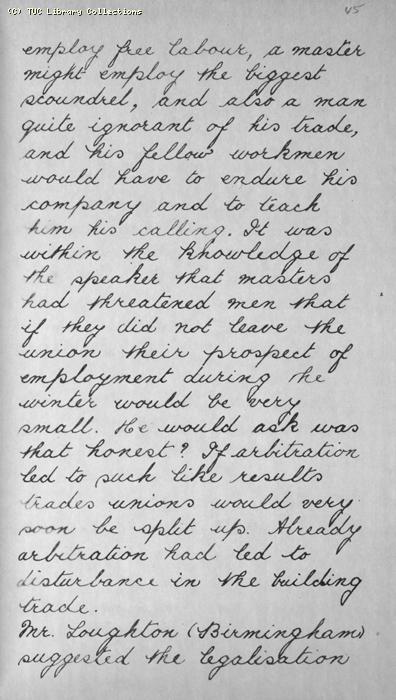 (C) TUC Library Collections
45
employ free labour, a master
might employ the biggest
scoundrel, and also a man
quite ignorant of his trade,
and his fellow workmen
would have to endure his
company and to teach
him his calling. It was
within the knowledge of
the speaker that masters
had threatened men that
if they did not leave the
union their prospect of
employment during the
winter would be very
small. He would ask was
that honest? If arbitration
led to such like results
trades unions would very
soon be split up. Already
arbitration had led to
disturbance in the building
trade.
Mr. Loughton (Birmingham)
suggested the legalisation